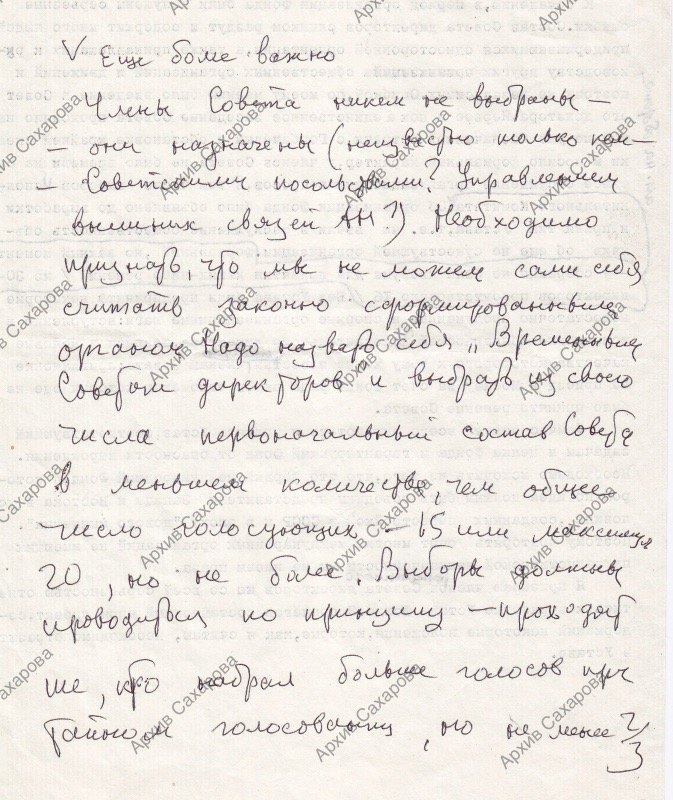 V Еще более важно
Члены Совета никем не выбраны –
– они назначены (неизвестно только кем –
– Советскими посольствами? Управлением
внешних связей АН?) Необходимо
признать, что мы не можем сами себя
считать законно сформированным
органом. Надо назвать себя „Временным
Советом директоров" и выбрать из своего
числа первоначальный состав Совета
в меньшем количестве, чем общее
число голосующих – 15 или максимум
20, но не более. Выборы должны
проводиться по принципу – проходят
те, кто набрал больше голосов при
тайном голосовании, но не менее 2/3
Архив Сахарова